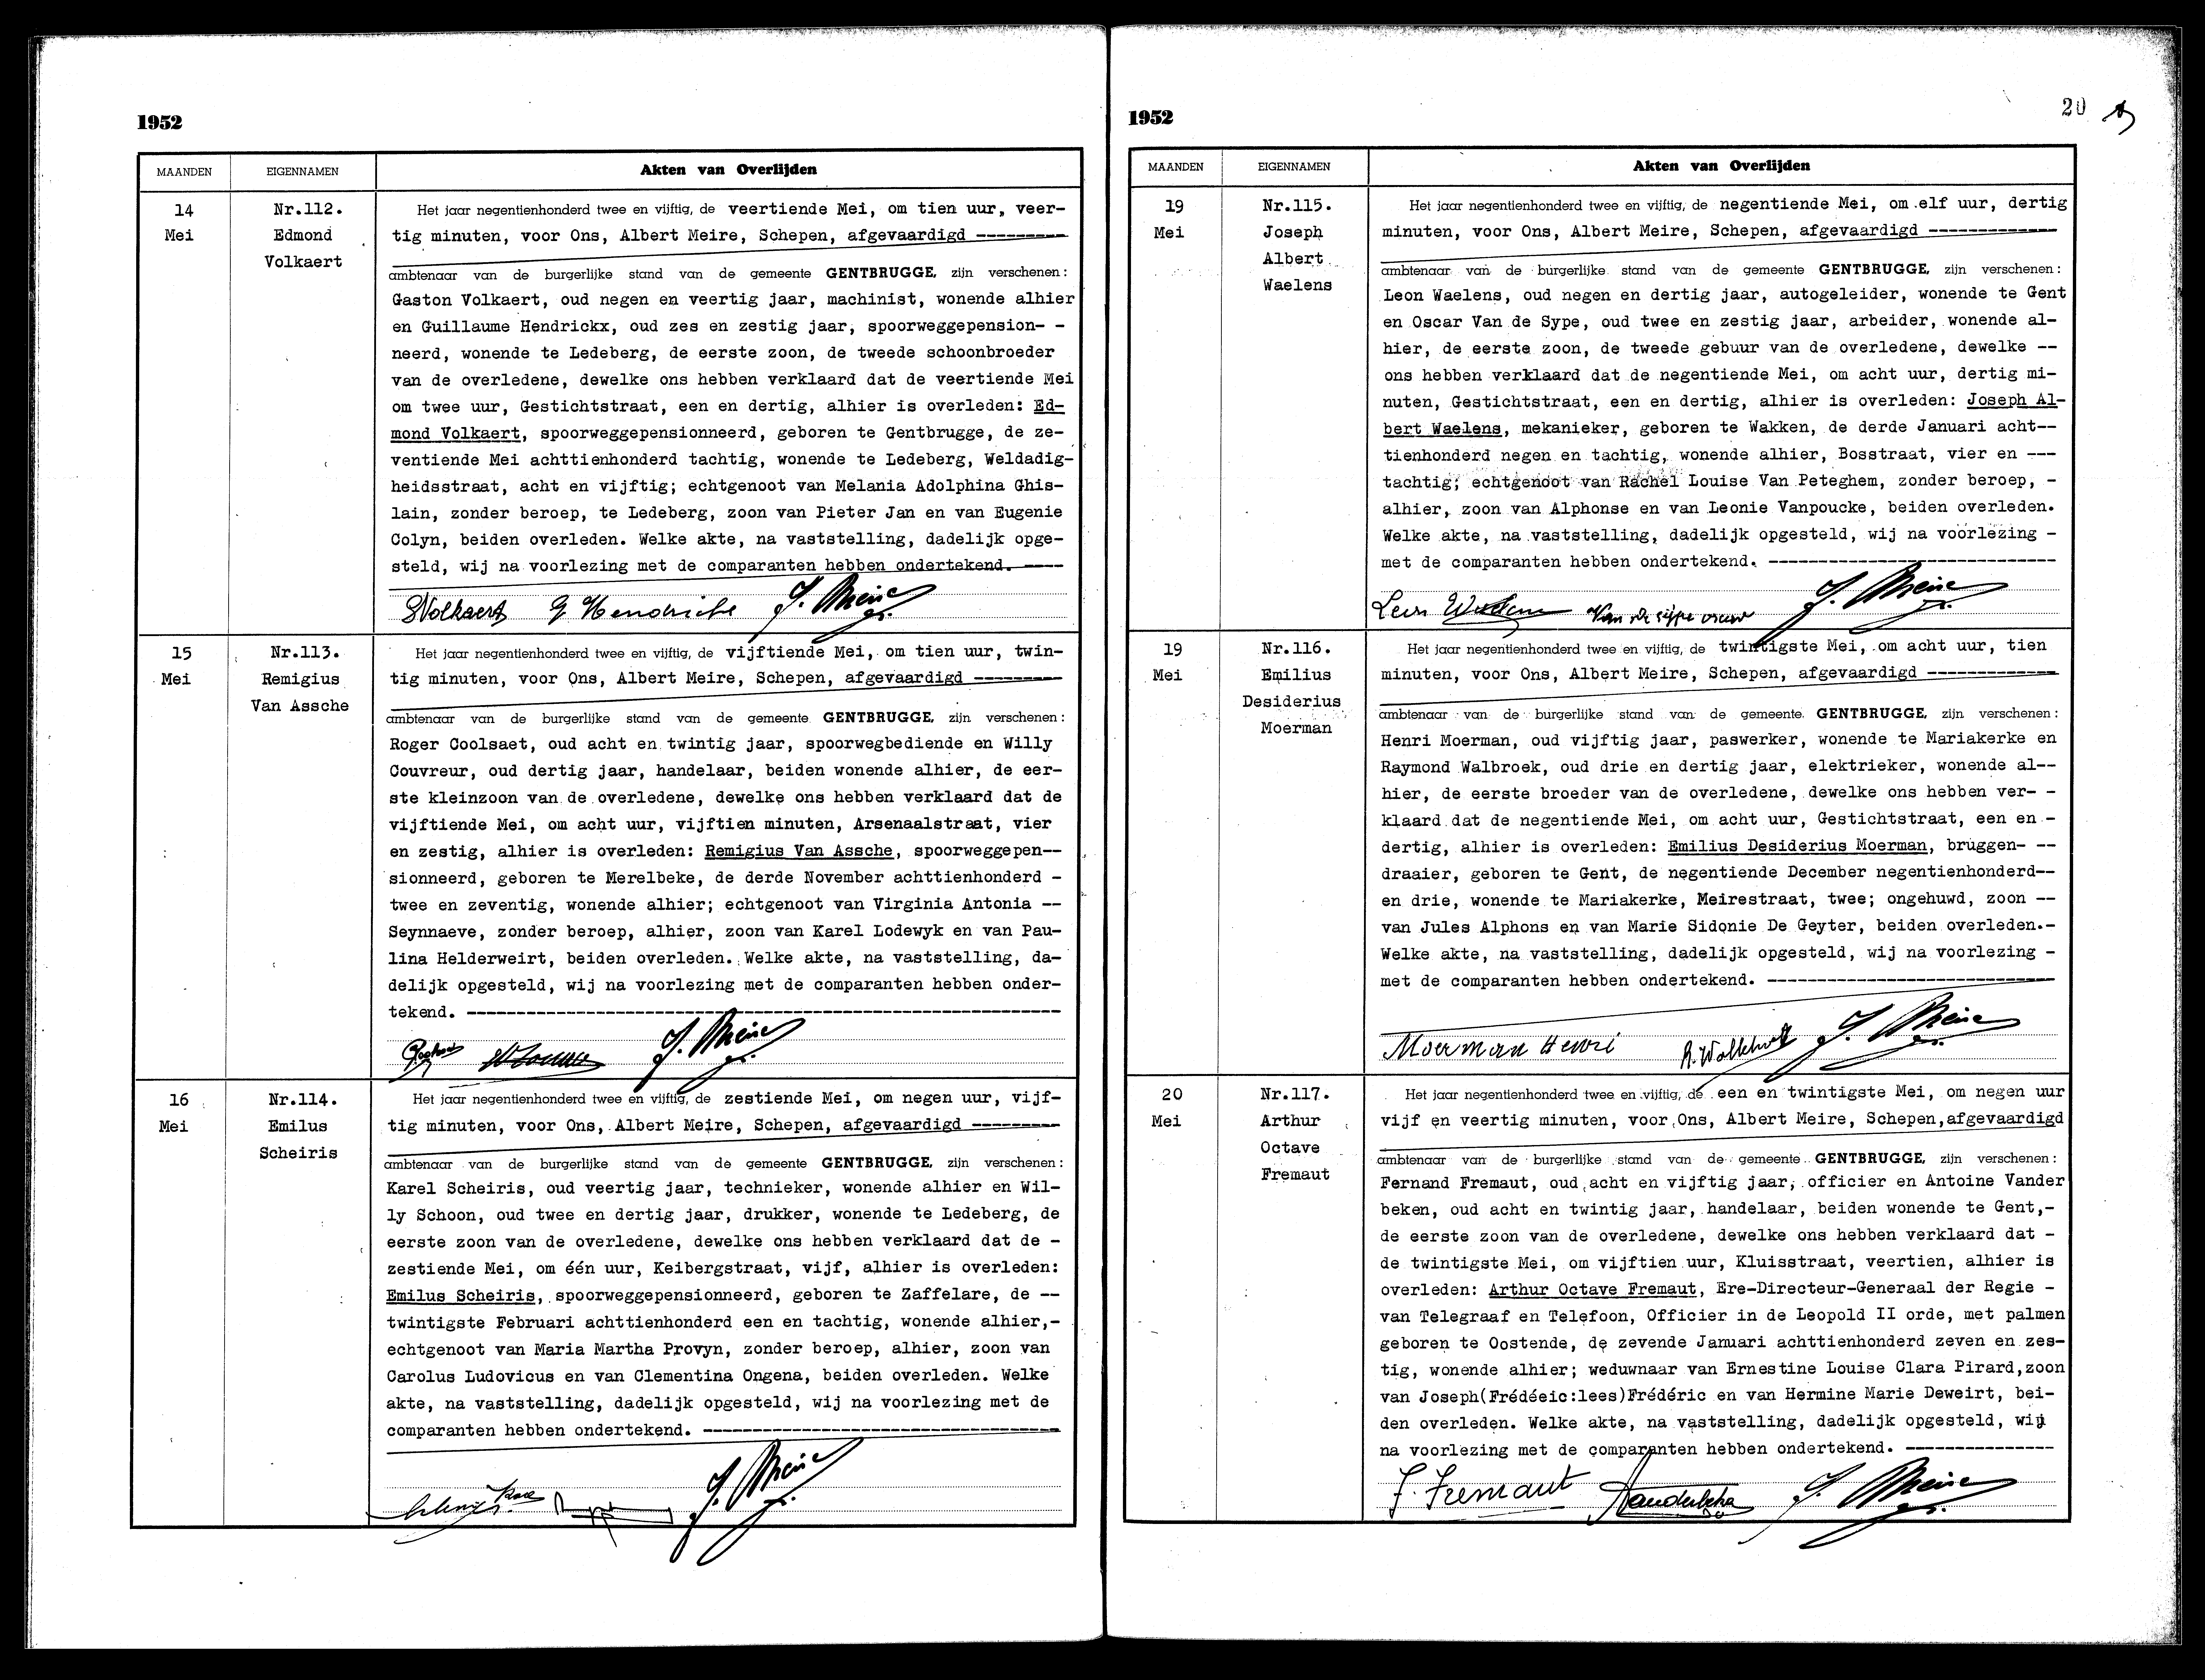 1952
MAANDEN EIGENNAMEN Akten van Overlijden
14 Mei
Nr.112. Edmond Volkaert
Het jaar negentienhonderd twee en vijftig, de veertiende Mei, om tien uur, veer-
tig minuten, voor Ons, Albert Meire, Schepen, afgevaardigd ---------
ambtenaar van de burgerlijke stand van de gemeente GENTBRUGGE, zijn verschenen:
Gaston Volkaert, oud negen en veertig jaar, machinist, wonende alhier
en Guillaume Hendrickx, oud zes en zestig jaar, spoorweggepension- -
neerd, wonende te Ledeberg, de eerste zoon, de tweede schoonbroeder
van de overledene, dewelke ons hebben verklaard dat de veertiende Mei
om twee uur, Gestichtstraat, een en dertig, alhier is overleden: Ed-
mond Volkaert, spoorweggepensionneerd, geboren te Gentbrugge, de ze-
ventiende Mei achttienhonderd tachtig, wonende te Ledeberg, Weldadig-
heidsstraat, acht en vijftig; echtgenoot van Melania Adolphina Ghis-
lain, zonder beroep, te Ledeberg, zoon van Pieter Jan en van Eugenie
Colyn, beiden overleden. Welke akte, na vaststelling, dadelijk opge-
steld, wij na voorlezing met de comparanten hebben ondertekend. ----
GVolkaert G Hendrickx
15 Mei
Nr.113. Remigius Van Assche
Het jaar negentienhonderd twee en vijftig, de vijftiende Mei, om tien uur, twin-
tig minuten, voor Ons, Albert Meire, Schepen, afgevaardigd ---------
ambtenaar van de burgerlijke stand van de gemeente GENTBRUGGE, zijn verschenen:
Roger Coolsaet, oud acht en twintig jaar, spoorwegbediende en Willy
Couvreur, oud dertig jaar, handelaar, beiden wonende alhier, de eer-
ste kleinzoon van de overledene, dewelke ons hebben verklaard dat de
vijftiende Mei, om acht uur, vijftien minuten, Arsenaalstraat, vier
en zestig, alhier is overleden: Remigius Van Assche, spoorweggepen--
sionneerd, geboren te Merelbeke, de derde November achttienhonderd -
twee en zeventig, wonende alhier; echtgenoot van Virginia Antonia --
Seynnaeve, zonder beroep, alhier, zoon van Karel Lodewyk en van Pau-
lina Helderweirt, beiden overleden. Welke akte, na vaststelling, da-
delijk opgesteld, wij na voorlezing met de comparanten hebben onder-
tekend. ------------------------------------------------------------
16 Mei
Nr.114. Emilus Scheiris
Het jaar negentienhonderd twee en vijftig, de zestiende Mei, om negen uur, vijf-
tig minuten, voor Ons, Albert Meire, Schepen, afgevaardigd ---------
ambtenaar van de burgerlijke stand van de gemeente GENTBRUGGE, zijn verschenen:
Karel Scheiris, oud veertig jaar, technieker, wonende alhier en Wil-
ly Schoon, oud twee en dertig jaar, drukker, wonende te Ledeberg, de
eerste zoon van de overledene, dewelke ons hebben verklaard dat de -
zestiende Mei, om één uur, Keibergstraat, vijf, alhier is overleden:
Emilus Scheiris, spoorweggepensionneerd, geboren te Zaffelare, de --
twintigste Februari achttienhonderd een en tachtig, wonende alhier,-
echtgenoot van Maria Martha Provyn, zonder beroep, alhier, zoon van
Carolus Ludovicus en van Clementina Ongena, beiden overleden. Welke
akte, na vaststelling, dadelijk opgesteld, wij na voorlezing met de
comparanten hebben ondertekend. ------------------------------------
1952
20
MAANDEN EIGENNAMEN Akten van Overlijden
19 Mei
Nr.115. Joseph Albert Waelens
Het jaar negentienhonderd twee en vijftig, de negentiende Mei, om elf uur, dertig
minuten, voor Ons, Albert Meire, Schepen, afgevaardigd -------------
ambtenaar van de burgerlijke stand van de gemeente GENTBRUGGE, zijn verschenen:
Leon Waelens, oud negen en dertig jaar, autogeleider, wonende te Gent
en Oscar Van de Sype, oud twee en zestig jaar, arbeider, wonende al-
hier, de eerste zoon, de tweede gebuur van de overledene, dewelke --
ons hebben verklaard dat de negentiende Mei, om acht uur, dertig mi-
nuten, Gestichtstraat, een en dertig, alhier is overleden: Joseph Al-
bert Waelens, mekanieker, geboren te Wakken, de derde Januari acht--
tienhonderd negen en tachtig, wonende alhier, Bosstraat, vier en ---
tachtig; echtgenoot van Rachel Louise Van Peteghem, zonder beroep, -
alhier, zoon van Alphonse en van Leonie Vanpoucke, beiden overleden.
Welke akte, na vaststelling, dadelijk opgesteld, wij na voorlezing -
met de comparanten hebben ondertekend. -----------------------------
19 Mei
Nr.116. Emilius Desiderius Moerman
Het jaar negentienhonderd twee en vijftig, de twintigste Mei, om acht uur, tien
minuten, voor Ons, Albert Meire, Schepen, afgevaardigd -------------
ambtenaar van de burgerlijke stand van de gemeente GENTBRUGGE, zijn verschenen:
Henri Moerman, oud vijftig jaar, paswerker, wonende te Mariakerke en
Raymond Walbroek, oud drie en dertig jaar, elektrieker, wonende al--
hier, de eerste broeder van de overledene, dewelke ons hebben ver- -
klaard dat de negentiende Mei, om acht uur, Gestichtstraat, een en -
dertig, alhier is overleden: Emilius Desiderius Moerman, bruggen- --
draaier, geboren te Gent, de negentiende December negentienhonderd--
en drie, wonende te Mariakerke, Meirestraat, twee; ongehuwd, zoon --
van Jules Alphons en van Marie Sidonie De Geyter, beiden overleden.-
Welke akte, na vaststelling, dadelijk opgesteld, wij na voorlezing -
met de comparanten hebben ondertekend. -----------------------------
Moerman Henri
20 Mei
Nr.117. Arthur Octave Fremaut
Het jaar negentienhonderd twee en vijftig, de een en twintigste Mei, om negen uur
vijf en veertig minuten, voor Ons, Albert Meire, Schepen,afgevaardigd
ambtenaar van de burgerlijke stand van de gemeente GENTBRUGGE, zijn verschenen:
Fernand Fremaut, oud acht en vijftig jaar, officier en Antoine Vander
beken, oud acht en twintig jaar, handelaar, beiden wonende te Gent,-
de eerste zoon van de overledene, dewelke ons hebben verklaard dat -
de twintigste Mei, om vijftien uur, Kluisstraat, veertien, alhier is
overleden: Arthur Octave Fremaut, Ere-Directeur-Generaal der Regie -
van Telegraaf en Telefoon, Officier in de Leopold II orde, met palmen
geboren te Oostende, de zevende Januari achttienhonderd zeven en zes-
tig, wonende alhier; weduwnaar van Ernestine Louise Clara Pirard,zoon
van Joseph(Frédéeic:lees)Frédéric en van Hermine Marie Deweirt, bei-
den overleden. Welke akte, na vaststelling, dadelijk opgesteld, wij
na voorlezing met de comparanten hebben ondertekend. ---------------
F. Fremaut